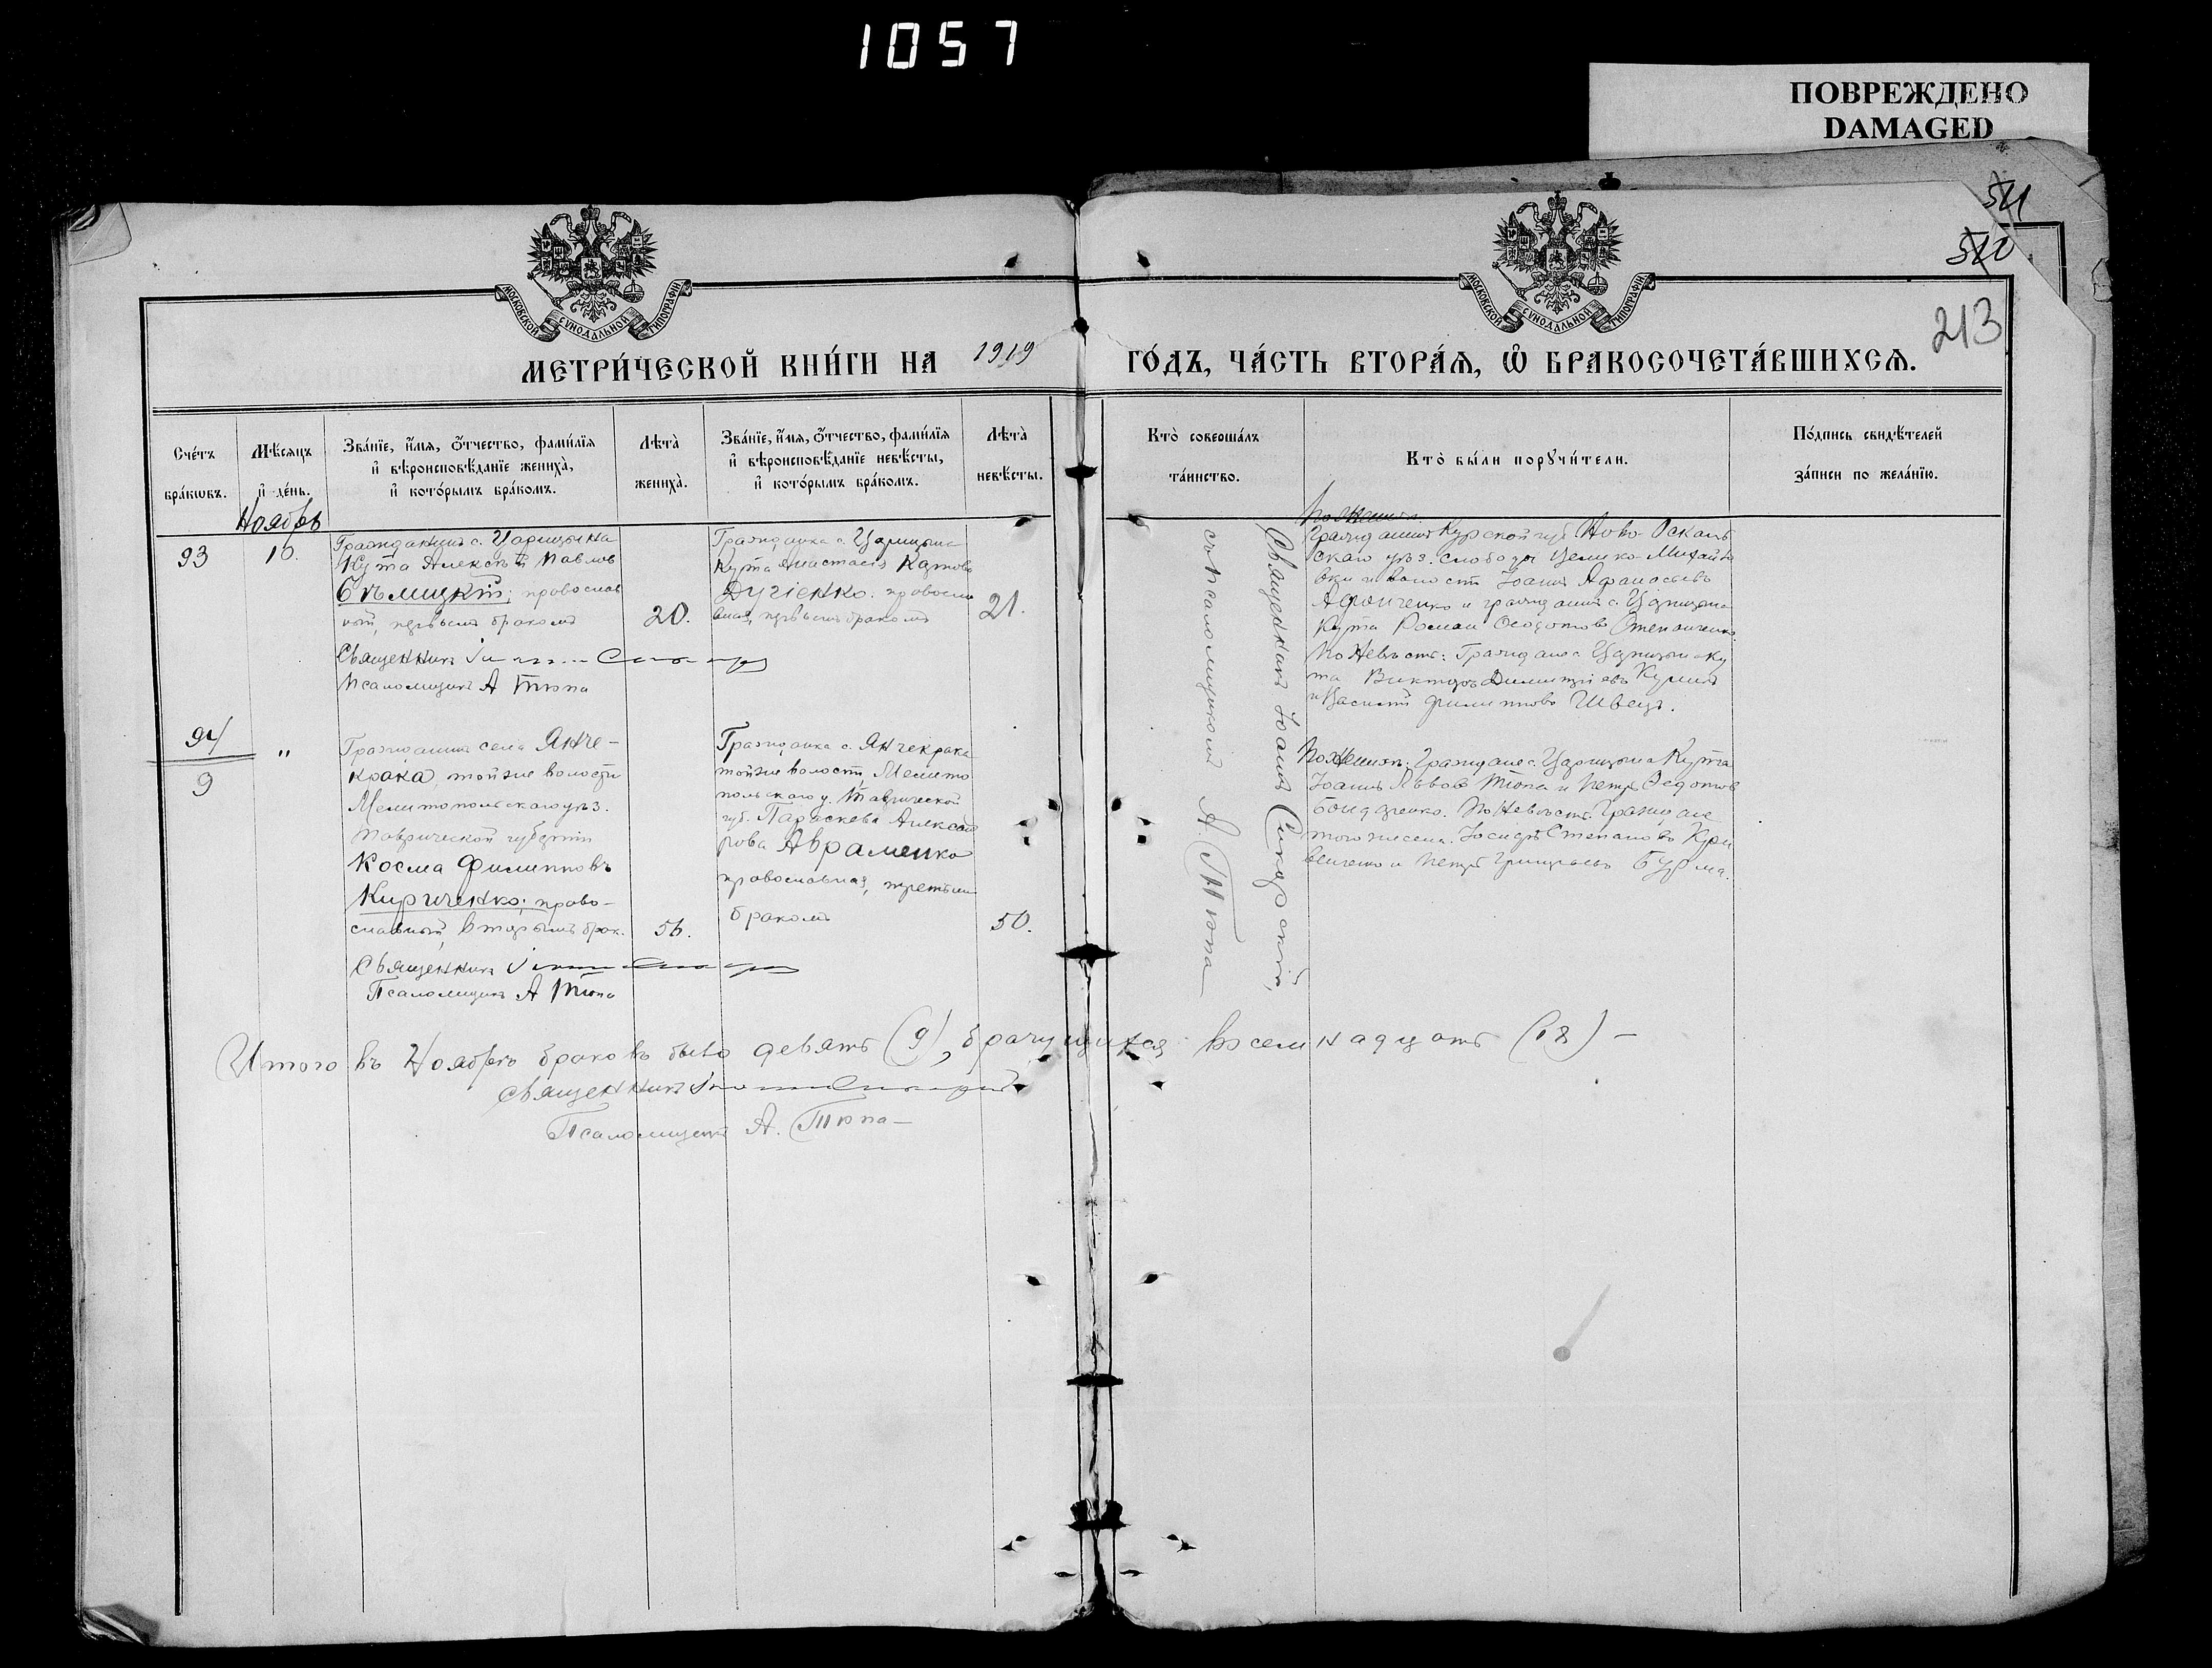 1057
ПОВРЕЖДЕНО
DAMAGED
511
510
213
МОСКОВСКОЙ СѴНОДАЛЬНОЙ ТИПОГРАФІИ
МОСКОВСКОЙ СѴНОДАЛЬНОЙ ТИПОГРАФІИ
МЕТРИ́ЧЕСКОЙ КНИ́ГИ НА 1919 ГО́ДЪ, ЧА́СТЬ ВТОРА́Я, Ѽ БРАКОСОЧЕТА́ВШИХСЯ.
Сче́тъ
бра́кѡвъ.
Мѣ́сяцъ
и҆ де́нь.
Зва́нїе, и҆́мя, ѻ҆́тчество, фами́лїя
и҆ вѣроисповѣ́данїе жениха̀,
и҆ кото́рымъ бра́комъ.
Лѣта̀
жениха̀.
Зва́нїе, и҆́мя, ѻ҆́тчество, фами́лїя
и҆ вѣроисповѣ́данїе невѣ́сты,
и҆ кото́рымъ бра́комъ.
Лѣта̀
невѣ́сты.
Кто̀ соверша́лъ
та́инство.
Кто̀ бы́ли порꙋчи́тели.
По́дпись свидѣ́телей
за́писи по жела́нїю.
Ноябрь
93
10.
Гражданинъ с. Царицына
Кута Алексѣй Павловъ
православ
ный, первымъ бракомъ
20.
Священникъ
Псаломщикъ А Тюпа
Гражданка с. Царицына
Кута Анастасія
правосла
вная, первымъ бракомъ
21.
Священникъ Іоаннъ
съ псаломщикомъ А. Тюпа
По женихѣ:
Гражданинъ Курской губ. Ново-Осколь
скаго уѣз. слободы Велико-Михайло
вки и волости Іоаннъ Афанасьевъ
и гражданинъ с. Царицына
Кута Роман Ѳеодотовъ Степаненко.
По невѣстѣ: Граждане с. Царицына Ку
та Викторъ Димитріевъ
и Василій Филипповъ Швецъ.
94
9
"
Гражданинъ села Янче-
крака, тойже волости
Мелитопольскаго уѣз.
Таврической губерніи
Косма Филипповъ
Кириченко; право-
славный, вторымъ брак.
56.
Священникъ
Псаломщикъ А Тюпа
Гражданка с. Янчекрака
тойже волости, Мелито
польскаго у. Таврической
губ. Параскева Алексан
рова Авраменко
православная, третьимъ
бракомъ
50.
По женихѣ: Граждане с. Царицына Кута
Іоаннъ Львовъ Тюпа и Петръ Ѳедотовъ
Бондаренко. По невѣстѣ: Граждане
тогоже села Іосифъ Степановъ Кри
венченко и Петръ Григорьевъ Бурма.
Итого въ Ноябрѣ браковъ было девять (9), брачущихся восемнадцать (18) –
Священникъ
Псаломщикъ А. Тюпа –